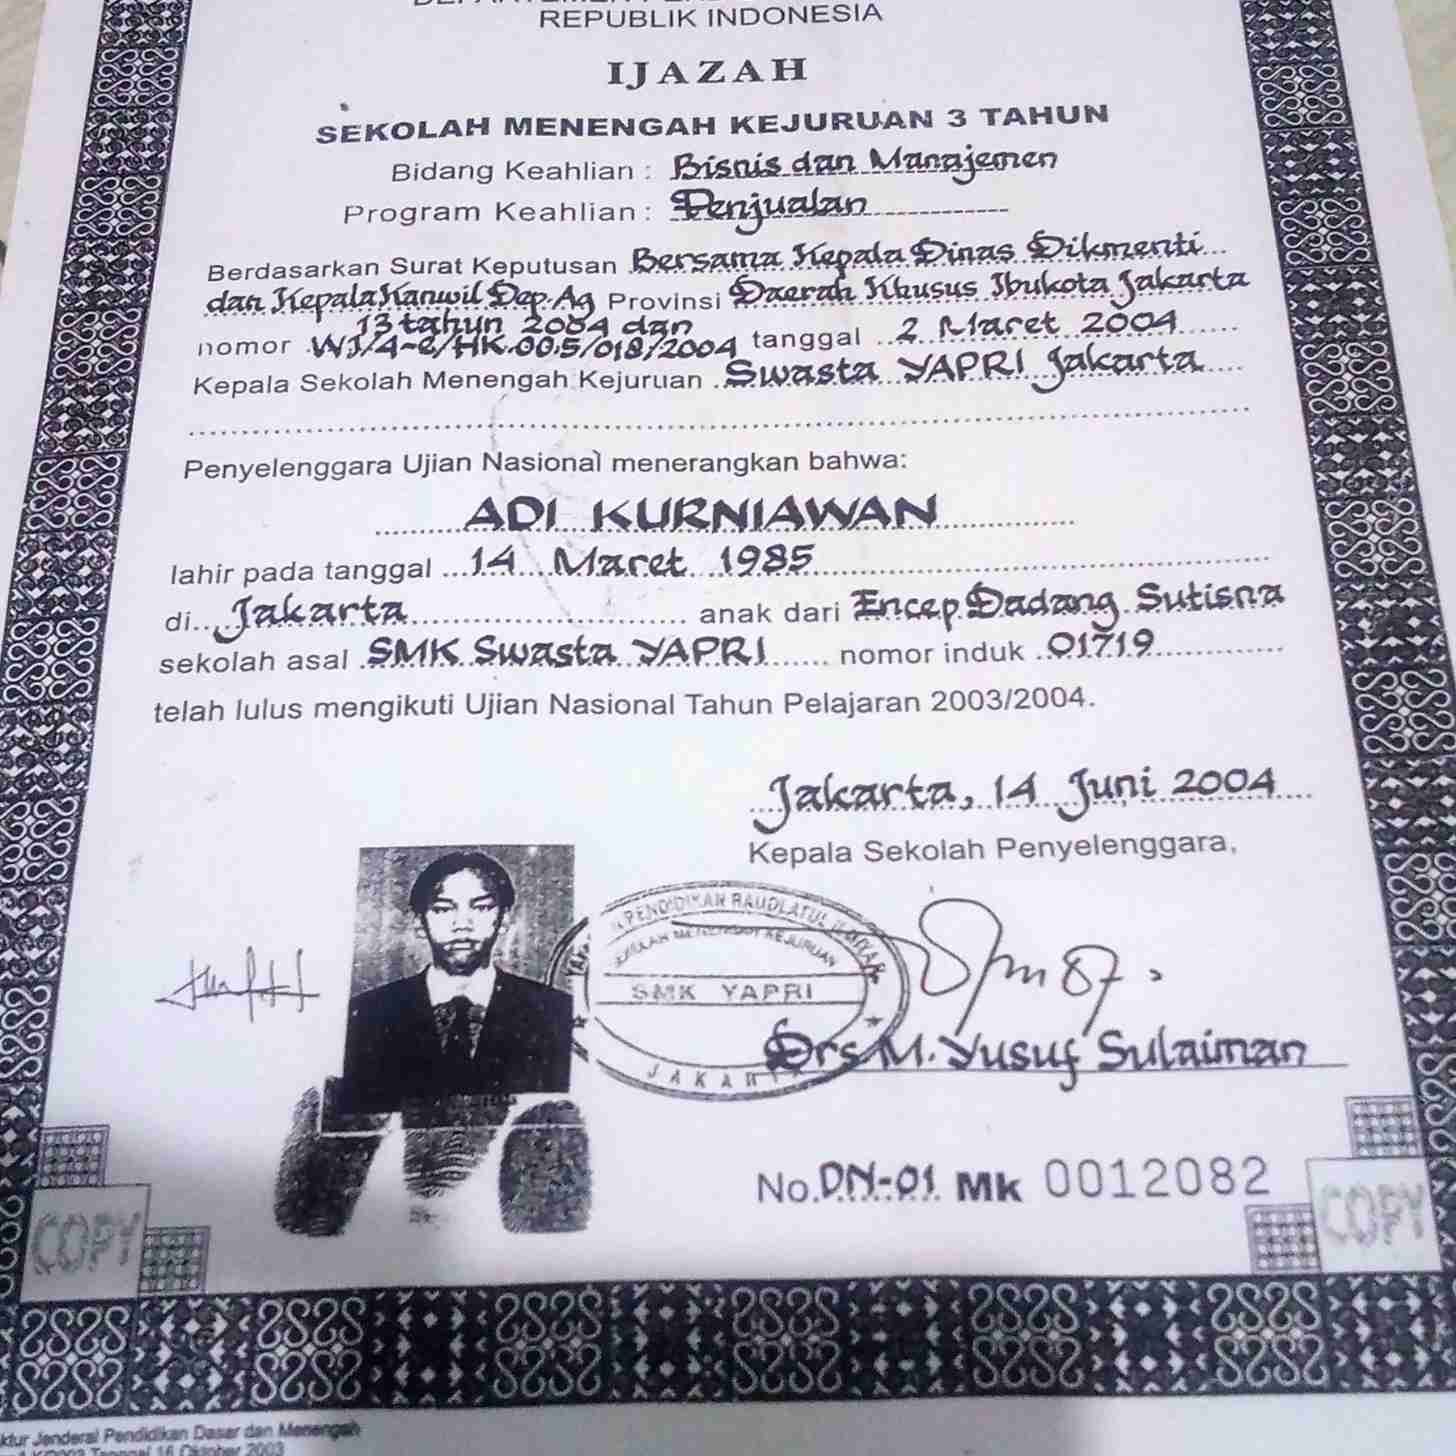 REPUBLIK INDONESIA
IJAZAH
SEKOLAH MENENGAH KEJURUAN 3 TAHUN
Bidang Keahlian : Bisnis dan Manajemen
Program Keahlian : Penjualan
Berdasarkan Surat Keputusan Bersama Kepala Dinas Dikmenti
dan Kepala Kanwil Dep. Ag Provinsi Daerah Khusus Ibukota Jakarta
13 tahun 2004 dan
nomor WJ/4-e/HK.00.5/018/2004 tanggal 2 Maret 2004
Kepala Sekolah Menengah Kejuruan Swasta YAPRI Jakarta
Penyelenggara Ujian Nasional menerangkan bahwa:
ADI KURNIAWAN
lahir pada tanggal 14 Maret 1985
di Jakarta anak dari Encep Dadang Sutisna
sekolah asal SMK Swasta YAPRI nomor induk 01719
telah lulus mengikuti Ujian Nasional Tahun Pelajaran 2003/2004.
Jakarta, 14 Juni 2004
Kepala Sekolah Penyelenggara,
PENDIDIKAN RAUDLATUL
MENENGAH KEJURUAN
SMK YAPRI
JAKARTA
Drs M. Yusuf Sulaiman
No. DN-01 Mk 0012082
COPY
COPY
Jenderal Pendidikan Dasar dan Menengah
Tanggal 16 Oktober 2003